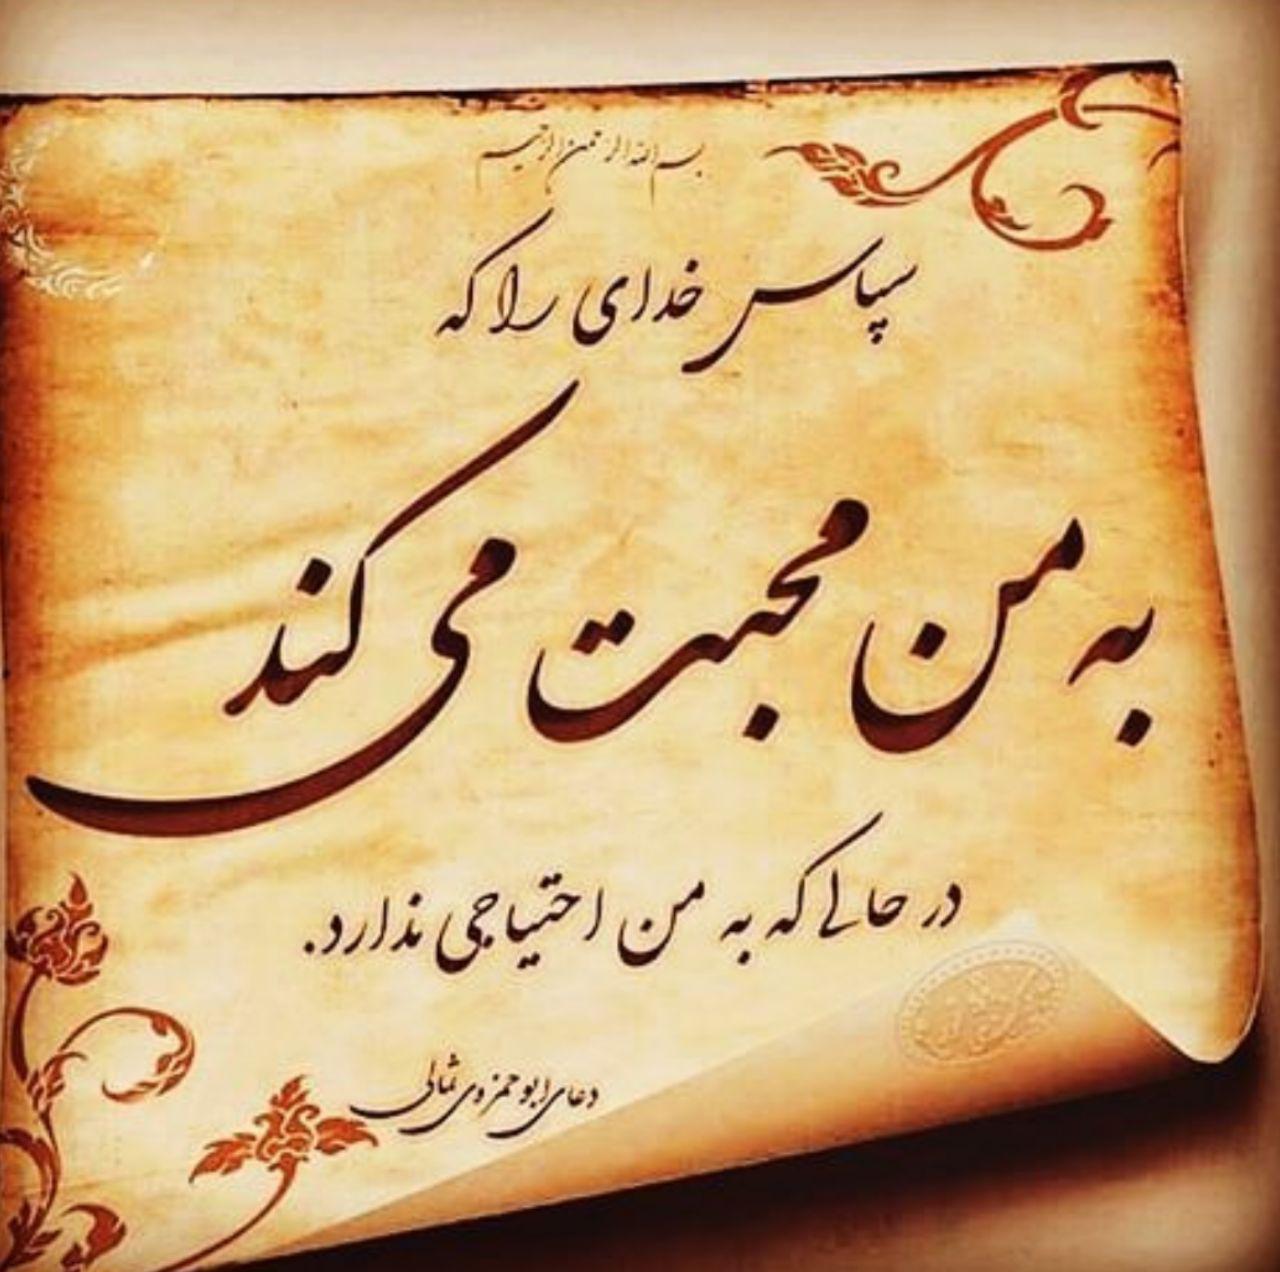 بسم الله الرحمن الرحیم
سپاس خدای را که
به من محبت می کند
در حالے که به من احتیاجی ندارد.
دعای ابوحمزه‌ی ثمالی